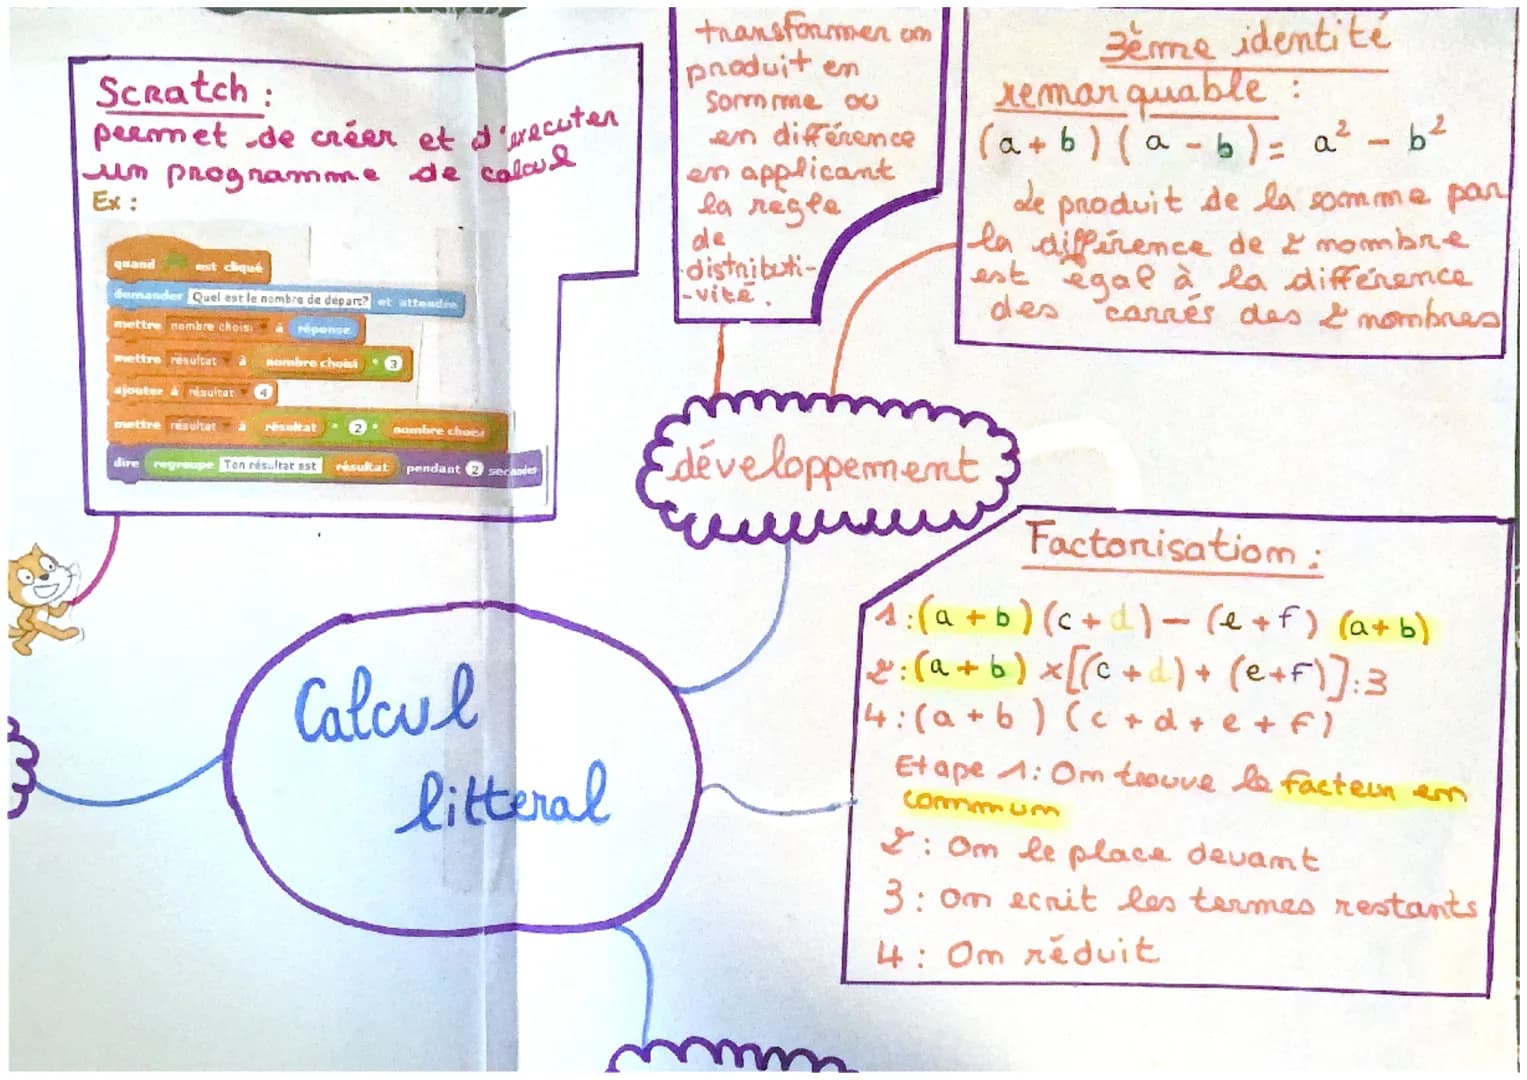 Scratch :
permet de créer et d'executer
un programme de calcul
Ex :
quand est cliqué
demander Quel est le nombre de départ? et attendre
mettre nombre choisi à réponse
mettre résultat à nombre choisi * 3
ajouter à résultat 4
mettre résultat à résultat * 2 * nombre choisi
dire regroupe Ton résultat est résultat pendant 2 secondes
transformer un
produit en
somme ou
en différence
en applicant
la regle
de
distributi-
-vité.
3ème identité
remarquable :
(a + b) (a - b) = a² - b²
Le produit de la somme par
la différence de 2 nombre
est égal à la différence
des carrés des 2 nombres
développement
Factorisation :
1 : (a + b) (c + d) - (e + f) (a + b)
2 : (a + b) x [(c + d) + (e + f)] : 3
4 : (a + b) (c + d + e + f)
Etape 1 : On trouve le facteur en
commun
2 : On le place devant
3 : On ecrit les termes restants
4 : On réduit
Calcul
litteral